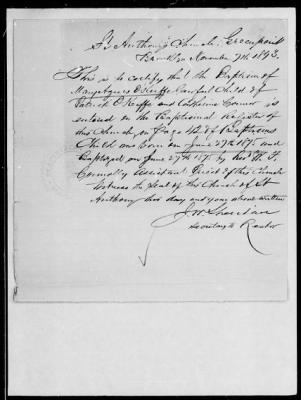 St Anthony's Church, Greenpoint
Brooklyn November 7th 1893.
This is to certify that the Baptism of
Mary Agnes O'Keeffe Lawful Child of
Patrick O'Keeffe and Catherine Connor is
entered in the Baptismal register of
this Church, on page 112 of Baptisms
Child was born on June 27th 187 and
Baptized on June 29th 187 by Rev.
assistant Priest of this Church
Witness the Seal of this Church of St
Anthony this day and year above written
Secretary to Rector